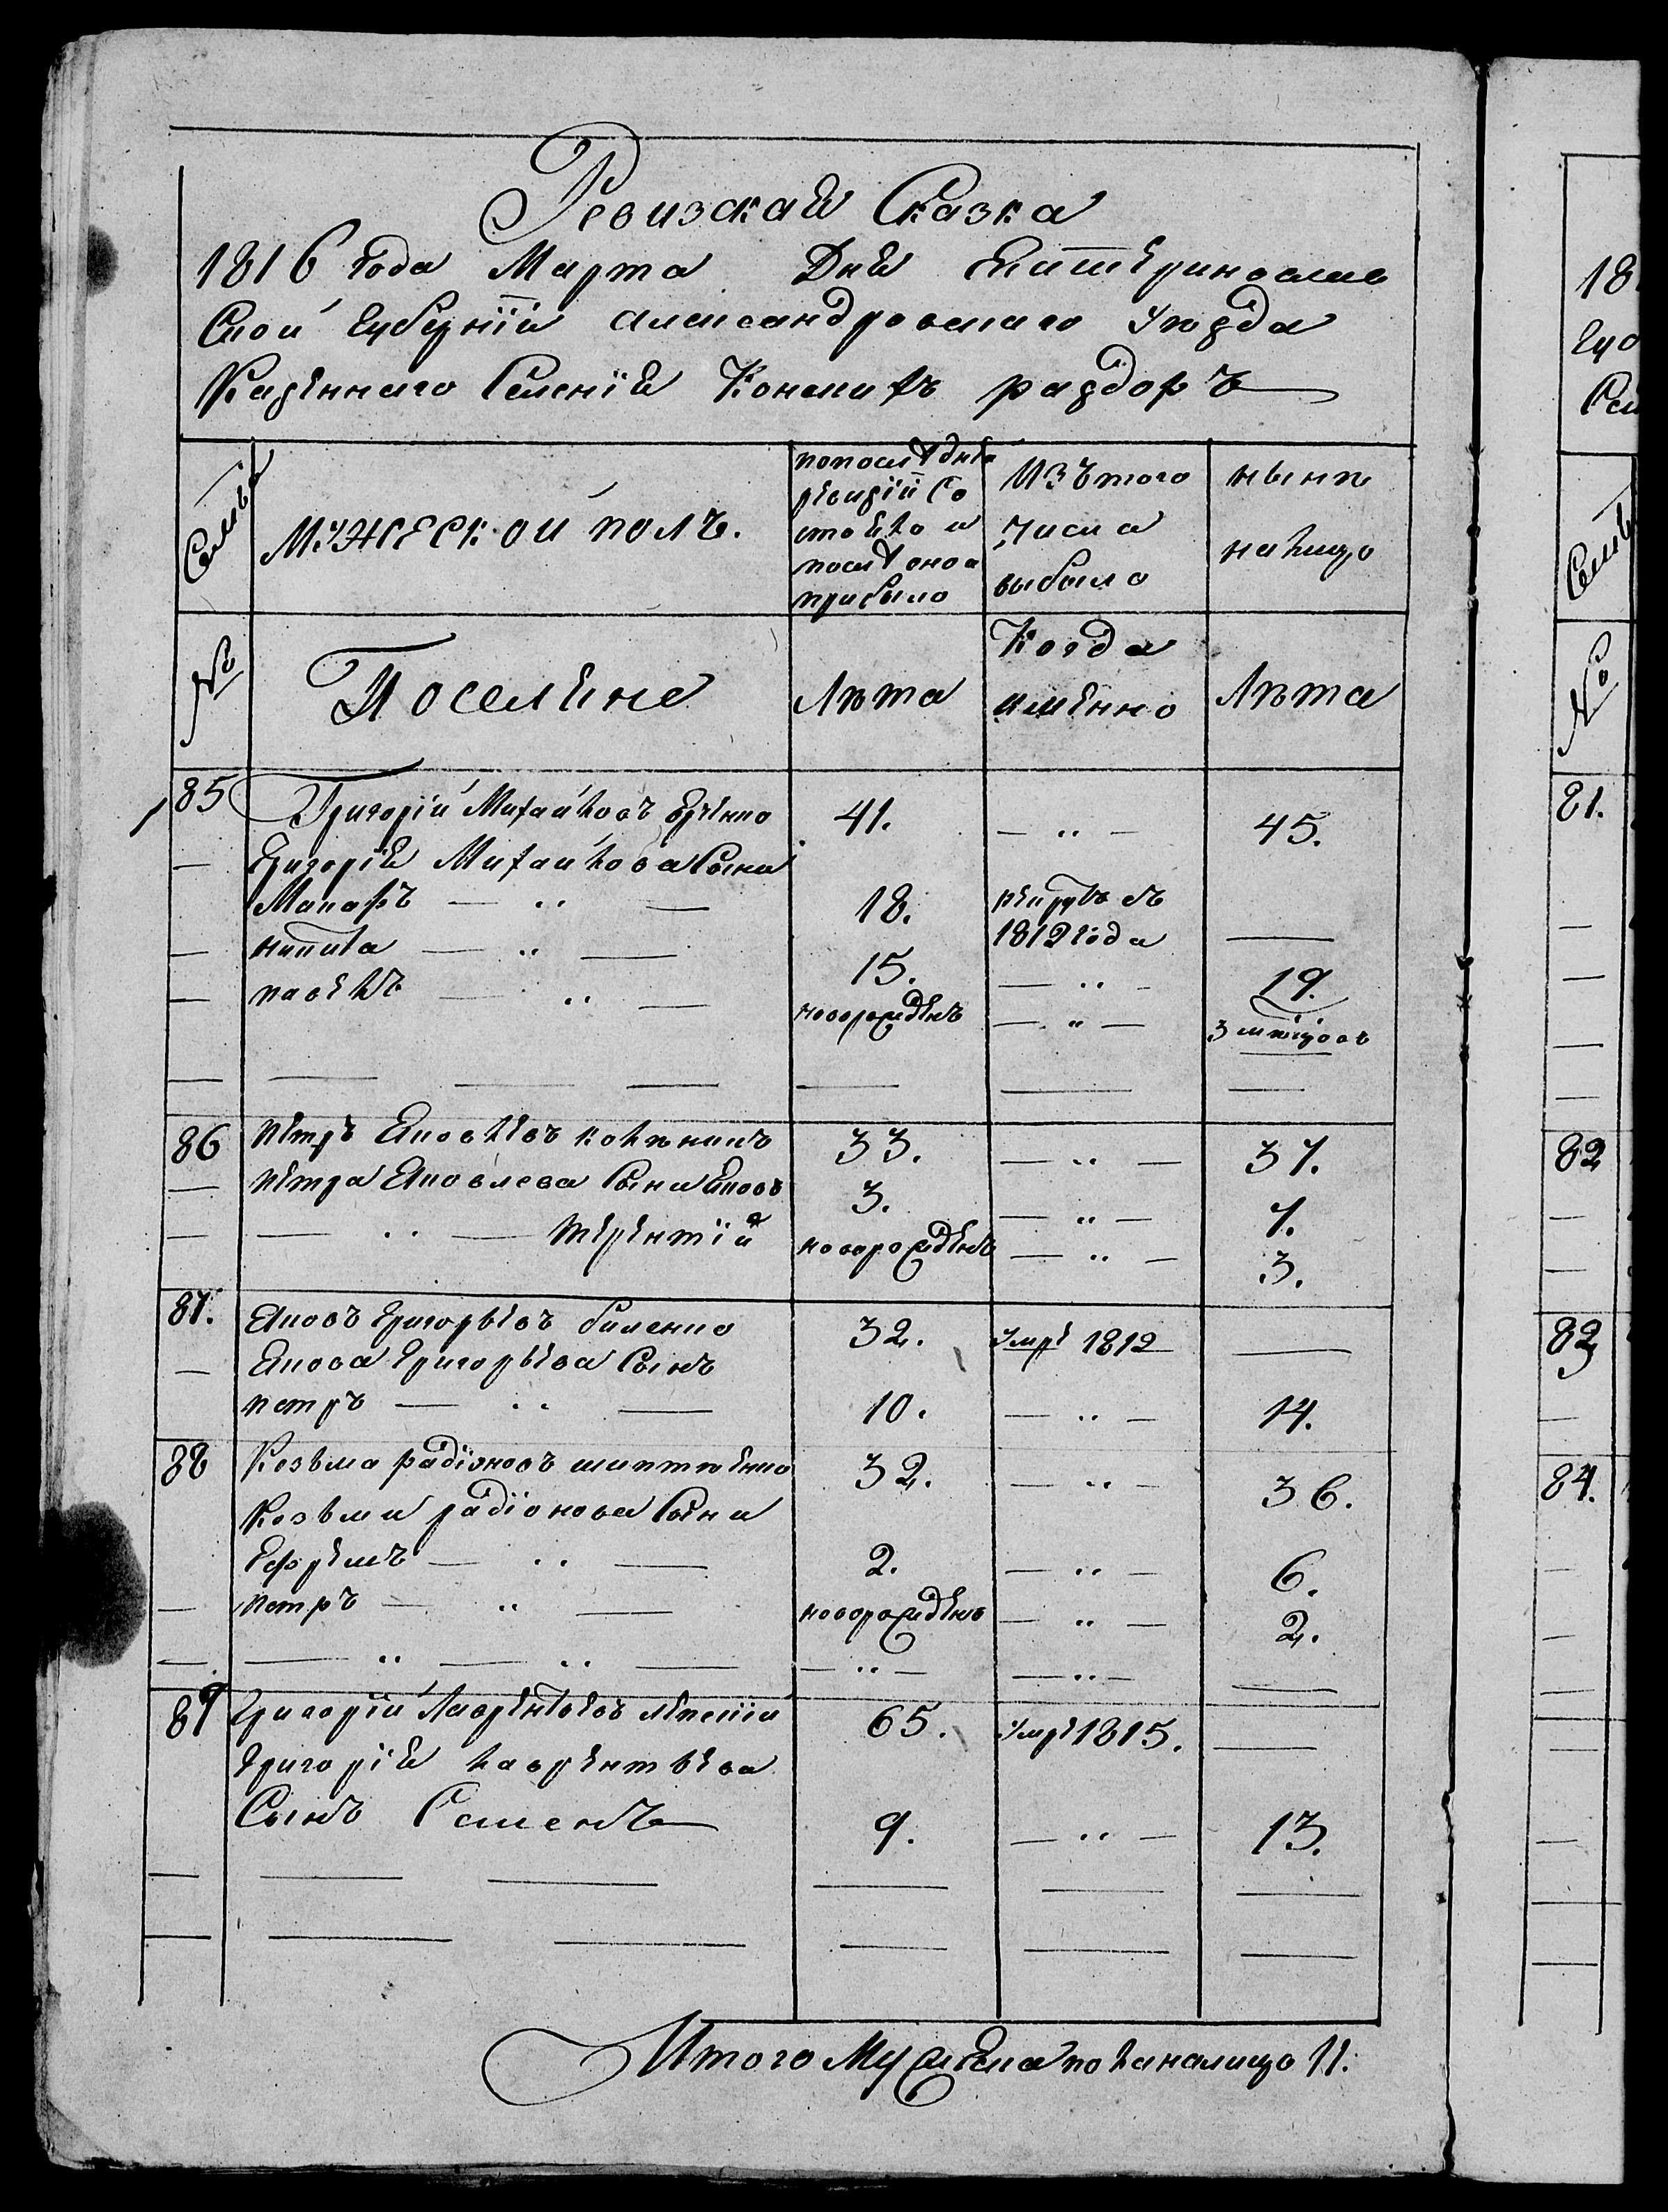 Ревизская Сказка
1816 года Марта Дня Екатеринослав
Ской Губернїи Александровскаго Уѣзда
Казеннаго Селенїя Конскихъ раздоръ
Семья
Мужеской полъ.
попослѣдней
ревизїи Со
стояло и
послѣ оной
прибыло
Изътого
Числа
выбыло
нынѣ
налицо
№
Поселяне
Лѣта
Когда
имянно
Лѣта
85 Григорїй Михайловъ 41. — " — 45.
— Григорїя Михайлова Сыни
Макаръ — " — 18. рекрутъ въ
1812 года —
— никита — " — 15. — " — 19.
— павелъ — " — новорожденъ — " — 3 мѣсяцовъ
86 Петръ Яковлевъ 33. — " — 37.
— Петра Яковлева Сыни Яковъ 3. — " — 7.
— — " — Терентїй новорожденъ — " — 3.
87. Яковъ Григорьевъ биленко 32. умре 1812 —
— Якова Григорьева Сынъ
петръ — " — 10. — " — 14.
88 Козьма радїоновъ 32. — " — 36.
Козьми радїонова Сыни
Ефремъ — " — 2. — " — 6.
— петръ — " — новорожденъ — " — 2.
— — " — " — — " — — " — —
89 Григорїй Лаврентьевъ 65. умре 1815. —
Григорїя лаврентьева
Сынъ Семенъ 9. — " — 13.
Итого Мужеска пола налицо 11.
18
Гу
Сел
Семья
№
81.
82
83
84.